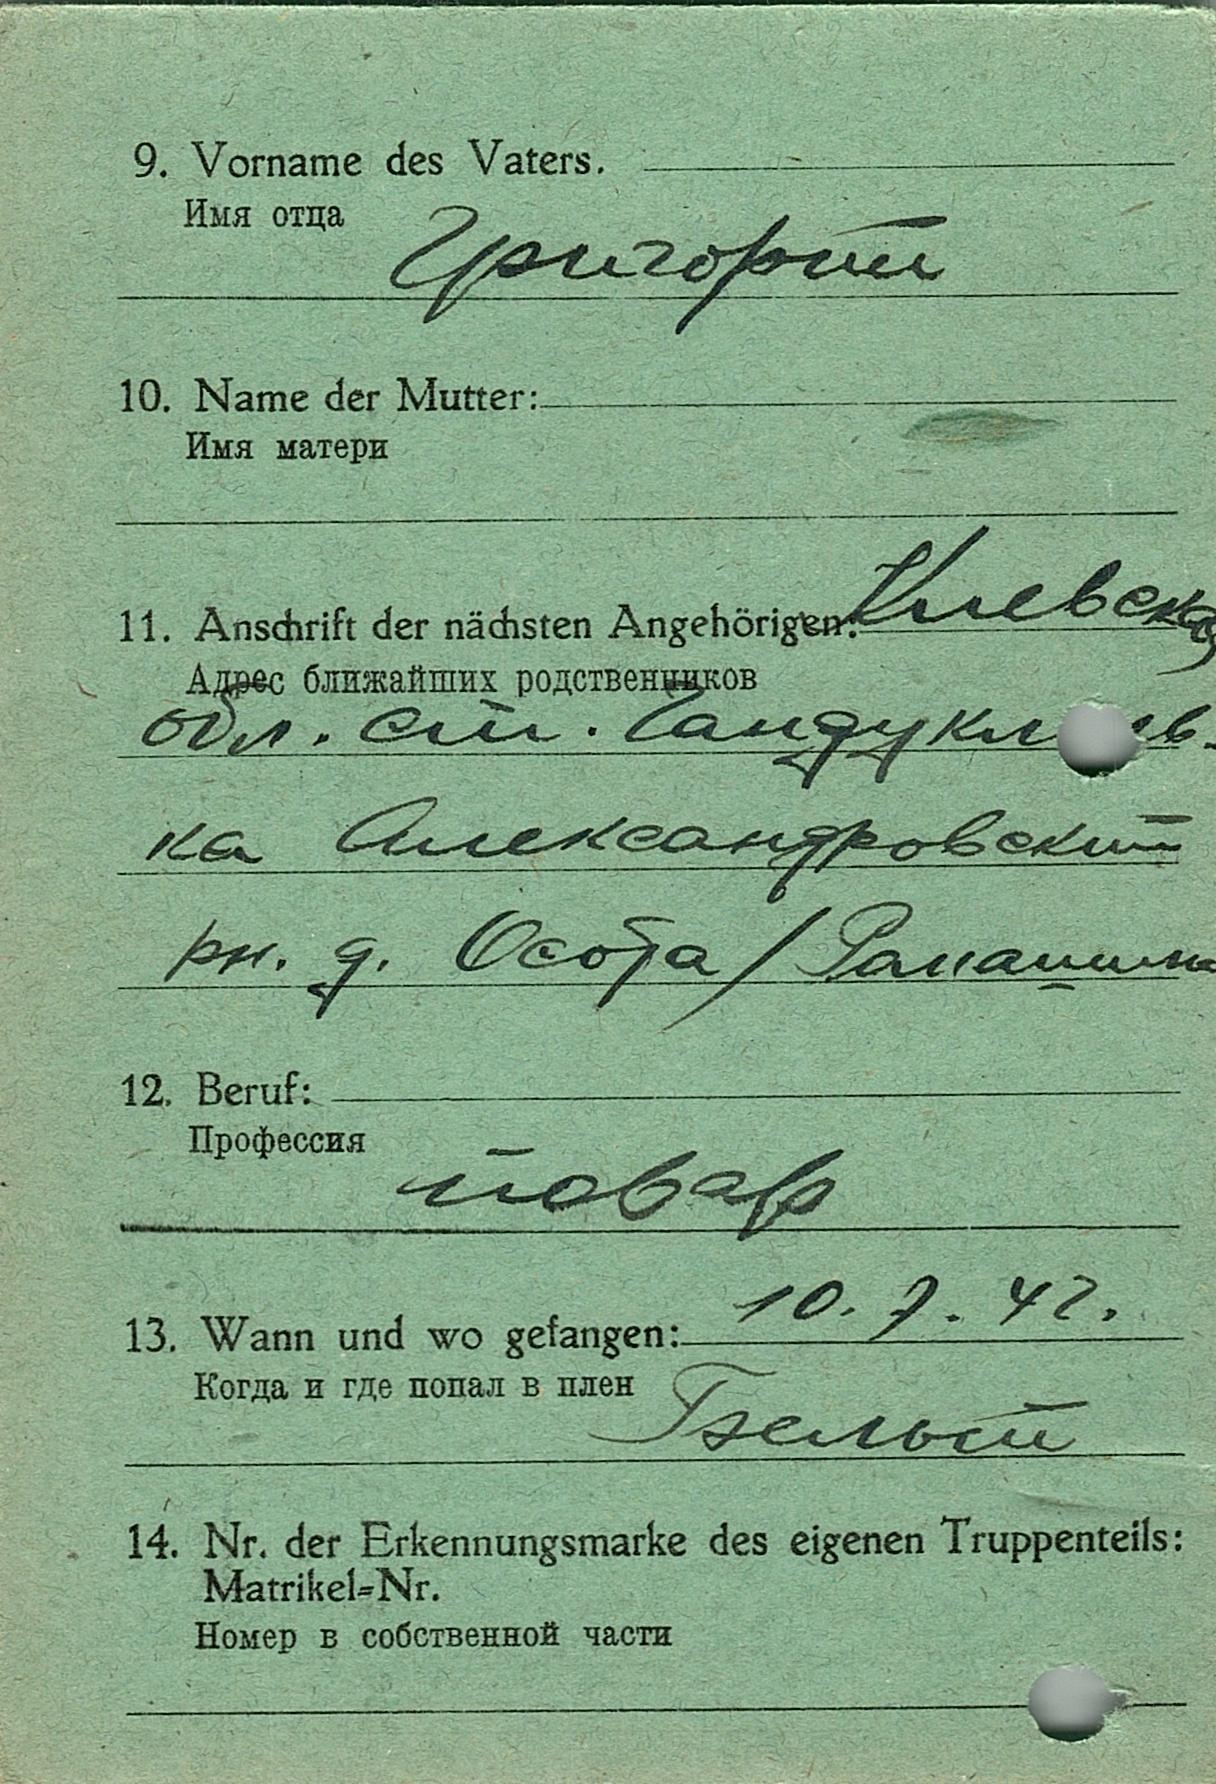 9. Vorname des Vaters.
Имя отца
Григорий
10. Name der Mutter:
Имя матери
11. Anschrift der nächsten Angehörigen: Киевская
Адрес ближайших родственников
обл. ст.
ка Александровский
рн. д. Осота /
12. Beruf:
Профессия
повар
13. Wann und wo gefangen: 10. 7. 42.
Когда и где попал в плен
14. Nr. der Erkennungsmarke des eigenen Truppenteils:
Matrikel=Nr.
Номер в собственной части